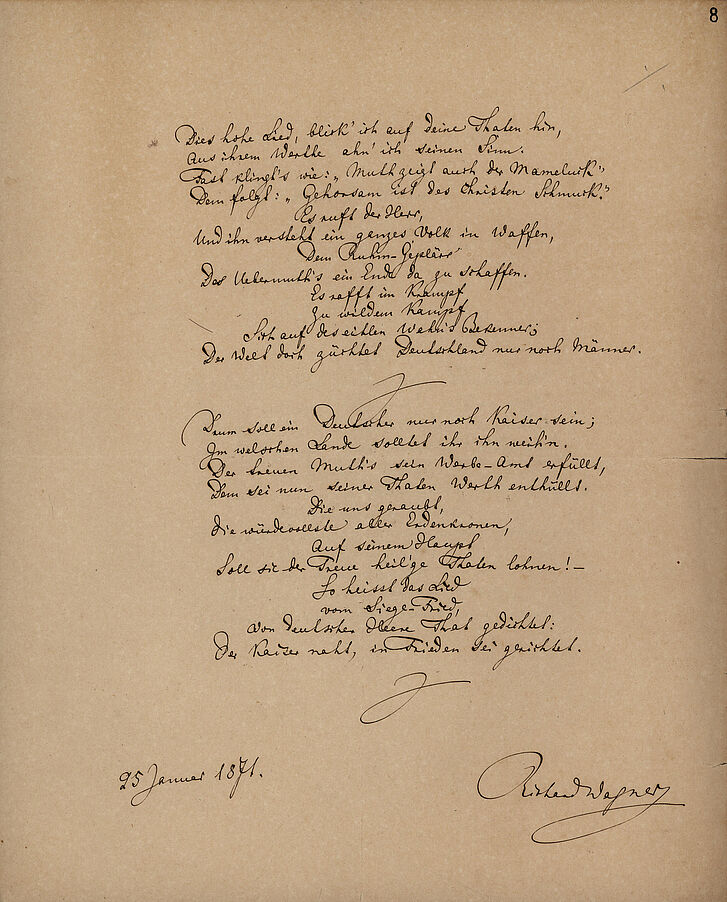 8
Dies hohe Lied, blick' ich auf deine Thaten hin,
Aus ihrem Werthe ahn' ich seinen Sinn.
Fast klingt's wie: „Muth zeigt auch der Mameluck"
Dem folgt: „Gehorsam ist des Christen Schmuck."
Es ruft der Herr,
Und ihn versteht ein ganzes Volk in Waffen,
Dem Ruhm-Geplärr
Des Uebermuth's ein Ende da zu schaffen.
Es rafft im Krampf
Zu wildem Kampf
Sich auf des eitlen Wahn's Bekenner;
Der Welt doch züchtet Deutschland nur noch Männer.
Drum soll ein Deutscher nur noch Kaiser sein;
Im welschen Lande solltet ihr ihn weih'n.
Der treuen Muth's sein Werbe-Amt erfüllt,
Dem sei nun seiner Thaten Werth enthüllt.
Die uns geraubt,
die würdevollste aller Erdenkronen,
Auf seinem Haupt
Soll sie der Treue heil'ge Thaten lohnen! —
So heisst das Lied
vom Siege-Fried,
von deutschen Heere That gedichtet:
Der Kaiser naht, in Frieden sei gerichtet.
25 Januar 1871.
Richard Wagner